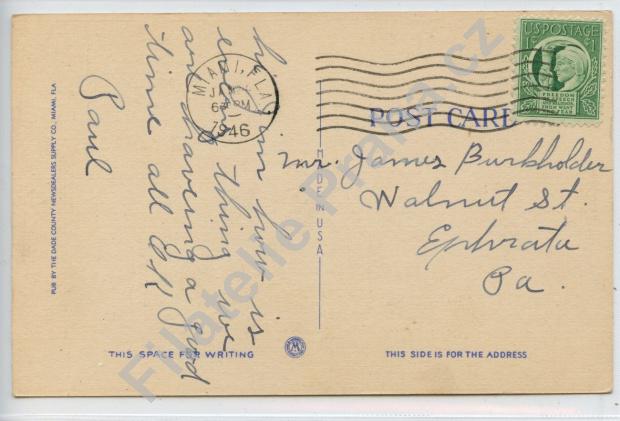 hi Jim how is
every thing we
are having a good
time all OK
Paul
MIAMI, FLA.
6 PM
1946
U.S. POSTAGE
1¢ 1¢
FREEDOM
OF SPEECH
AND RELIGION
FROM WANT
AND FEAR
POST CARD
Mr. James Burkholder
Walnut St.
Ephrata
Pa.
MADE IN USA
PUB BY THE DADE COUNTY NEWSDEALERS SUPPLY CO., MIAMI, FLA
THIS SPACE FOR WRITING
M
THIS SIDE IS FOR THE ADDRESS
Filatelie Praha.cz